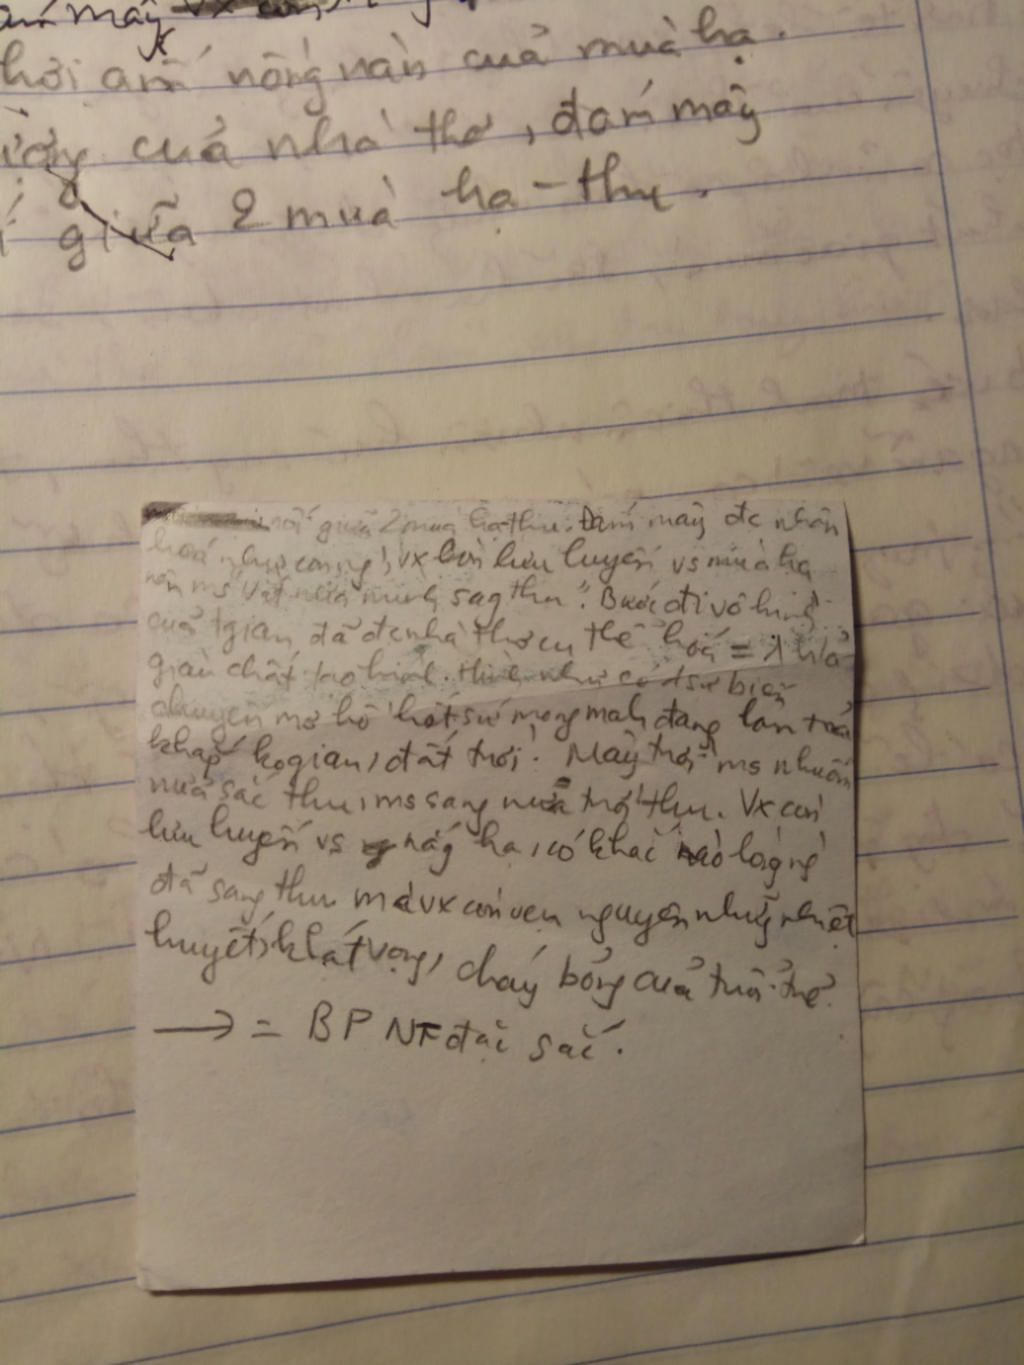 mây vx còn
hơi ấm nồng nàn của mùa hạ.
của nhà thơ, đám mây
giữa 2 mùa hạ - thu.
nối giữa 2 mùa hạ-thu. Đám mây đc nhân
hoá như con ng', vx còn lưu luyến vs mùa hạ
nên ms vắt nửa mình sag thu". Bước đi vô hình
của tgian đã đc nhà thơ cụ thể hoá =
gian chất tạo hình. Hình như có 1 sự biến
chuyển mơ hồ hết sức mong manh đang lan toả
khắp kogian, đất trời. Mây trời ms nhuốm
nửa sắc thu, ms sang nửa trời thu. Vx còn
lưu luyến vs nắg hạ, có khác nào lòng ng'
đã sang thu mà vx còn vẹn nguyên những nhiệt
huyết, khát vọng, cháy bỏng của tuổi trẻ.
→ = BP NT đặc sắc.